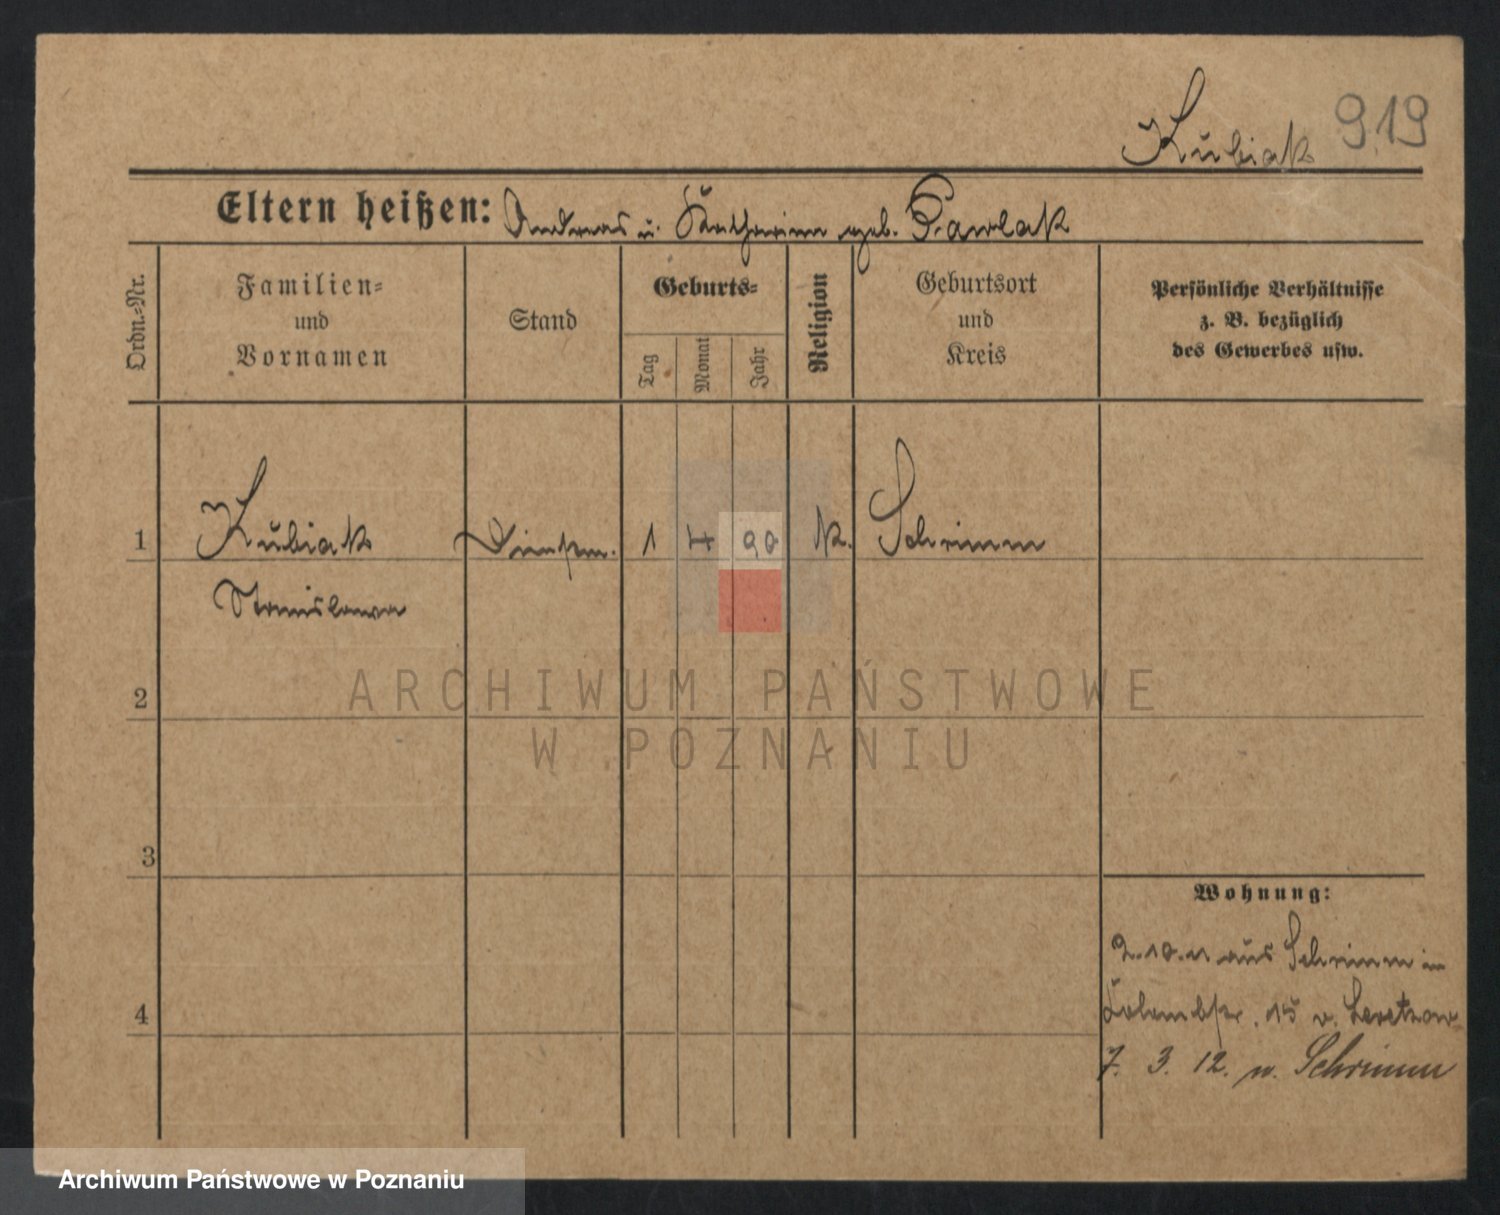 Kubiak 919
Eltern heißen: Andreas u. Katharina geb. Pawlak
Ordn.-Nr.
Familien-
und
Vornamen
Stand
Geburts-
Tag
Monat
Jahr
Religion
Geburtsort
und
Kreis
Persönliche Verhältnisse
z. B. bezüglich
des Gewerbes usw.
1 Kubiak 1 4 90 K. Schrimm
Stanislawa
2
3
4
Wohnung:
2.10.11 aus Schrimm in
15 v.
7. 3. 12. n. Schrimm
ARCHIWUM PAŃSTWOWE
W POZNANIU
Archiwum Państwowe w Poznaniu